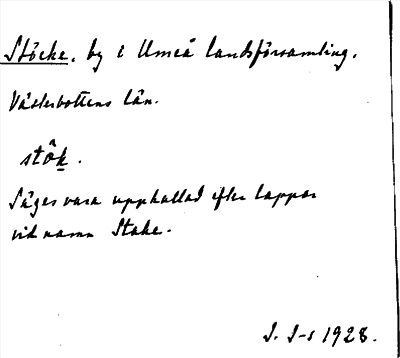 Stöcke, by i Umeå landsförsamling.
Västerbottens län.
stö̂k.
Säges vara uppkallad efter lappar
vid namn Stake.
J. J-s 1928.